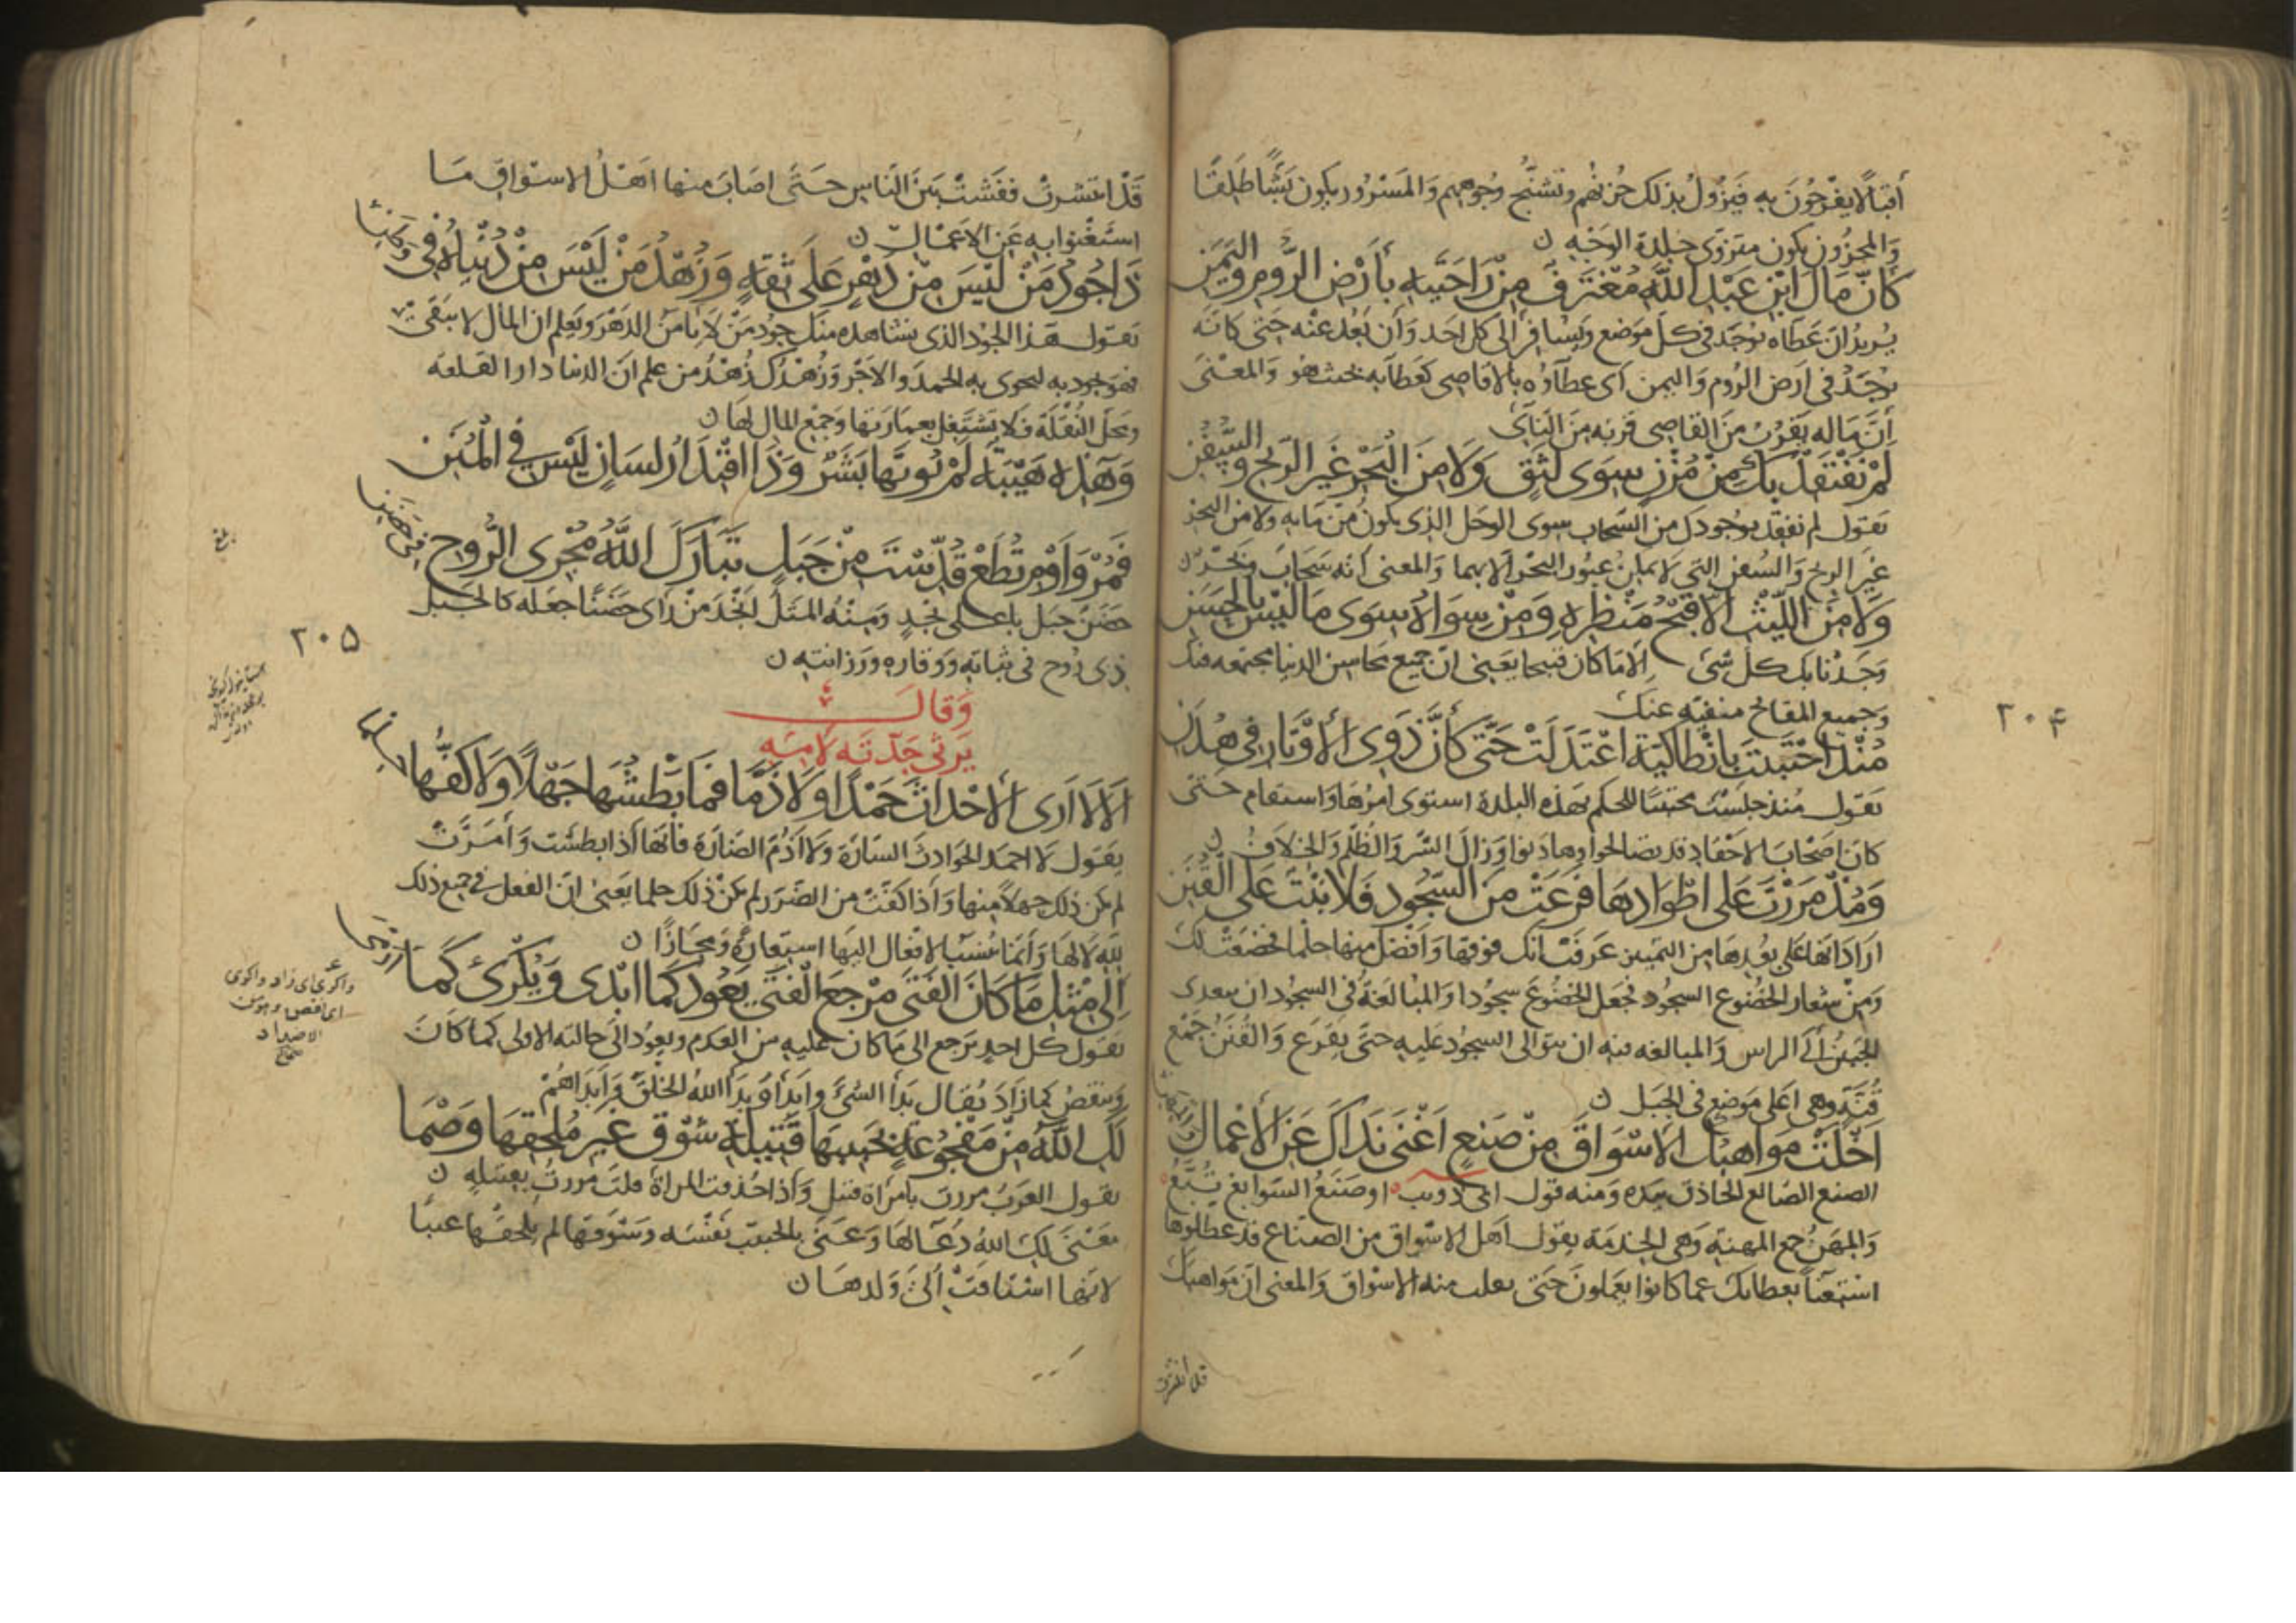 أقبالا يفرحون به فيزول بذلك حزنهم وتشنج وجوههم والمسرور يكون بشا طلقا
والمحزون يكون منزوى جلدة الوجه ن
كَانَّ مَالَ ابْنِ عَبْدِ اللَّهِ مُغْتَرَفٌ مِنْ رَاحَتَيْهِ بِأَرْضِ الرُّومِ وَاليَمَنِ
يريد ان عطاه يوجد فى كل موضع ويسافر الى كل احد وان بعد عنه حتى كانه
يوجد فى ارض الروم واليمن اى عطاؤه بالاقاصى كعطائه بحيث هو والمعنى
أن ماله يقرب من القاصى قربه من النائى
لَمْ نَفْتَقِدْ بِكَ مِنْ مُزْنٍ سِوَى لَثَقٍ وَلَا مِنَ الْبَحْرِ غَيْرَ الرِّيحِ وَالسُّفُنِ
تقول لم نفقد بوجودك من السحاب سوى الوحل الذى يكون من مايه ولا من البحر
غير الريح والسفن التى لا يمكن عبور البحر الا بهما والمعنى أنه سحاب وبحر ن
وَلَا مِنَ اللَّيْثِ الَّا قُبْحَ مَنْظَرِهِ وَمِنْ سِوَاهُ سِوَى مَا لَيْسَ بِالْحَسَنِ
وجدنا بك كل شى الا ما كان قبيحا يعنى ان جميع محاسن الدنيا مجتمعه فيك
وجميع المقابح منفية عنك
مُنْذُ احْتَبَيْتَ بِانْطَاكِيَّةَ اعْتَدَلَتْ حَتَّى كَأَنَّ ذَوِى الأَوْتَارِ فِى هُدَنِ
تقول منذ جلست محتبيا للحكم بهذه البلدة استوى امرها واستقام حتى
كان اصحاب الاحقاد قد تصالحوا وهادنوا وزال الشر والظلم والخلاف ن
وَمُذْ مَرَرْتَ عَلَى اطْوَادِهَا قَرِعَتْ مِنَ السُّجُودِ فَلَا نَبْتَ عَلَى الْقُنَنِ
اراد انها على بعدها من التمييز عرفت انك فوقها وافضل منها حلما فخضعت لك
ومن شعار الخضوع السجود فجعل الخضوع سجودا والمبالغة فى السجود ان يعدى
الجبين الى الراس والمبالغه فيه ان يتوالى السجود عليه حتى يقرع والقنن جمع
قنة وهى اعلى موضع فى الجبل ن
اَخْلَتْ مَوَاهِبُكَ الاسْوَاقَ مِنْ صَنَعٍ اَغْنَى نَدَاكَ عَنِ الأَعْمَالِ وَالمِهَنِ
الصنع الصانع الحاذق بيده ومنه قول ابى ذويب ۰ او صنع السوابغ تبع ۰
والمهن جمع المهنة وهى الخدمة يقول اهل الاسواق من الصناع قد عطلوها
استغنا بعطائك عما كانوا يعملون حتى خلت منه الاسواق والمعنى ان مواهبك
قد انتشرت
۲۰۴
قد انتشرت ففشت بين الناس حتى اصاب منها اهل الاسواق ما
استغنوا به عن الاعمال ن
ذَا جُودُ مَنْ لَيْسَ مِنْ دَهْرٍ عَلَى ثِقَةٍ وَزُهْدُ مَنْ لَيْسَ مِنْ دُنْيَاهُ فِى وَطَنِ
تقول هذا الجود الذى نشاهده منك جود من لا يامن الدهر ويعلم ان المال لا يبقى
فهو يجود به ليحوى به الحمد والاجر وزهدك زهد من علم ان الدنيا دار القلعه
ومحل النقلة فلا يشتغل بعمارتها وجمع المال لها ن
وَهَذِهِ هَيْبَةٌ لَمْ يُؤتَهَا بَشَرٌ وَذَا اقْتِدَارُ لِسَانٍ لَيْسَ فِى الْمُنَنِ
فَمُرْ وَاَوْمِ تُطَعْ قُدِّسْتَ مِنْ جَبَلٍ تَبَارَكَ اللَّهُ مُجْرِى الرُّوحِ فِى حَضَنِ
حضن جبل باعلى نجد ومنه المثل انجد من راى حضنا جعله كالجبل
ذى روح فى ثباته ووقاره ورزانته ن
۲۰۵
وقال
يرثى جدته لامه
اَلَا لَا اَرَى الأَحْدَاثَ حَمْدًا وَلَا ذَمَّا فَمَا بَطْشُهَا جَهْلًا وَلَا كَفُّهَا حِلْمَا
يقول لا احمد الحوادث السارة ولا اذم الضارة فانها اذا بطشت وأضرت
لم يكن ذلك جهلا منها واذا كفت من الضرر لم يكن ذلك حلما يعنى ان الفعل فى جميع ذلك
لله لا لها وانما تنسب الافعال اليها استعارة ومجازا ن
اِلَى مِثْلِ مَا كَانَ الفَتَى مَرْجِعُ الْفَتَى يَعُودُ كَمَا ابْدِى وَيُكْرِى كَمَا ارْمَى
يقول كل احد يرجع الى ما كان عليه من العدم ويعود الى حالته الاولى كما كان
وينقص كما زاد يقال بدأ الشى وابدا وبدأ الله الخلق وابداهم
واكرى اى زاد واكرى
اى نقص وهو من
الاضداد
صحاح
لَكِ اللَّهُ مِنْ مَفْجُوعَةٍ بِحَبِيبِهَا قَتِيلَةِ شَوْقٍ غَيْرِ مُلْحِقِهَا وَصْمَا
تقول العرب مررت بامراة قتيل واذا حذفت المراة قلت مررت بقتيلة ن
معنى لك الله دعا لها وعنى بالحبيب نفسه وشوقها لم يلحقها عيبا
لانها اشتاقت الى ولدها ن